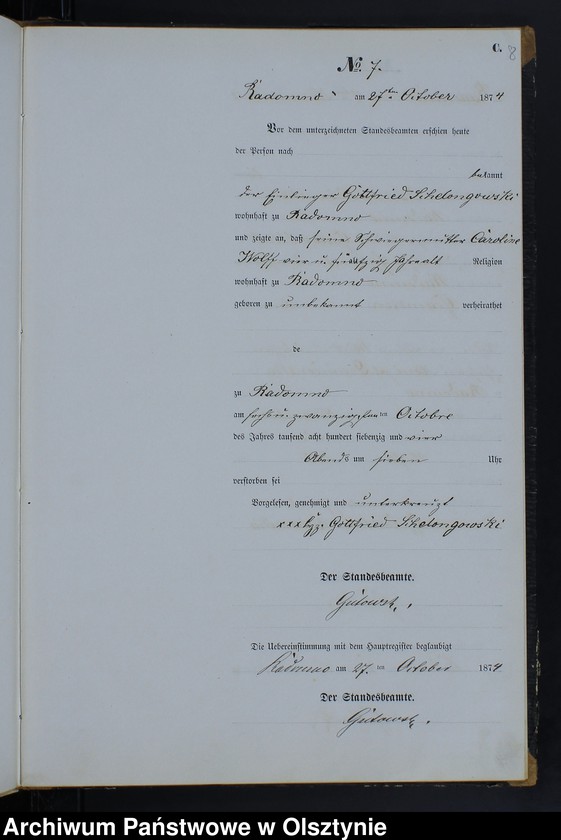 C.
8
No. 7.
Radomno am 27ten October 1874
Vor dem unterzeichneten Standesbeamten erschien heute
der Person nach
bekannt
der Einlieger Gottfried Schelongowski
wohnhaft zu Radomno
und zeigte an, daß seine Schwiegermutter Caroline
Wolff vier u. fünfzig Jahre alt Religion
wohnhaft zu Radomno
geboren zu unbekannt verheirathet
de
zu Radomno
am sechs u zwanzigsten ten Octobre
des Jahres tausend acht hundert siebenzig und vier
Abends um sieben Uhr
verstorben sei
Vorgelesen, genehmigt und unterkreuzt
xxx Gottfried Schelongowski
Der Standesbeamte.
Die Uebereinstimmung mit dem Hauptregister beglaubigt
Radomno am 27. ten October 1874
Der Standesbeamte.
Archiwum Państwowe w Olsztynie